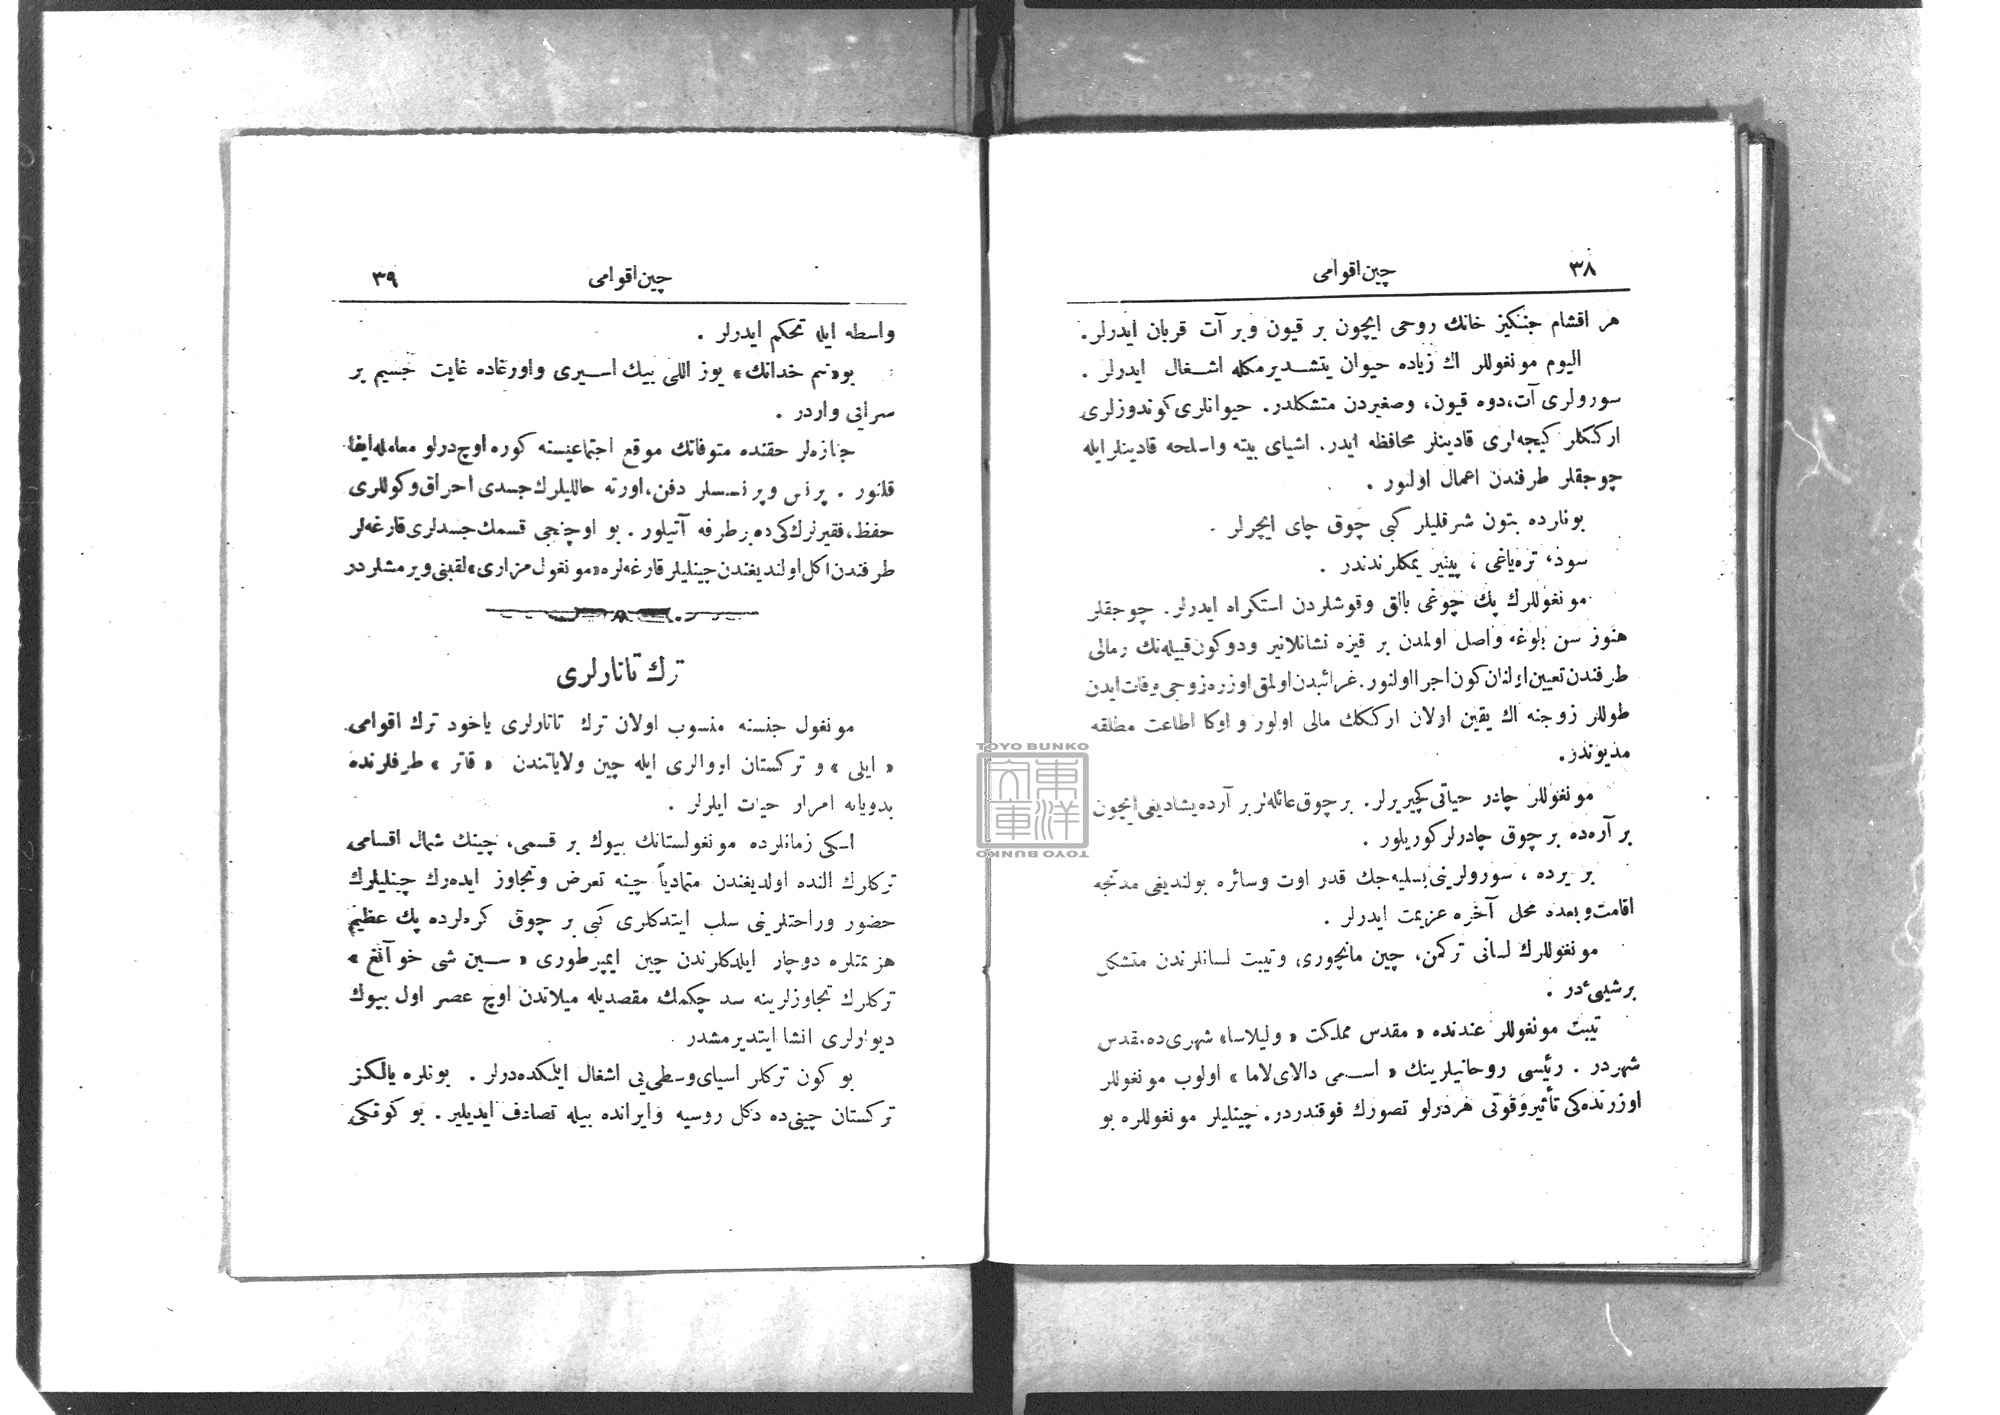 ٣٨
چين اقوامى
هر اقشام جنكيز خانك روحى ايچون بر قيون وبر آت قربان ايدرلر.
اليوم مونغوللر اك زياده حيوان يتشديرمكله اشغال ايدرلر .
سورولرى آت، دوه قيون، وصغيردن متشكلدر. حيوانلرى كوندوزلرى
ارككلر كيجه‌لرى قادينلر محافظه ايدر. اشياى بيته واسلحه قادينلر ايله
چوجقلر طرفندن اعمال اولنور .
بونلرده بتون شرقليلر كبى چوق چاى ايچرلر .
سود، تره‌ياغى ، پينير يمكلرندندر .
مونغوللرك پك چوغى بالق وقوشلردن استكراه ايدرلر. چوجقلر
هنوز سن بلوغه واصل اولمدن بر قيزه نشانلانير ودوكون قبيله‌نك رمالى
طرفندن تعيين اولنان كون اجرا اولنور. غرائبدن اولمق اوزره زوجى وفات ايدن
طوللر زوجنه اك يقين اولان ارككك مالى اولور و اوكا اطاعت مطلقه
مديوندر.
مونغوللر چادر حياتى كچيريرلر. بر چوق عائله‌لر بر آرده يشاديغى ايچون
بر آره‌ده بر چوق چادرلر كوريلور .
بر يرده ، سورولرينى بسليه‌جك قدر اوت وسائره بولنديغى مدتجه
اقامت وبعده محل آخره عزيمت ايدرلر .
مونغوللرك لسانى تركمن، چين مانچورى وتيبت لسانلرندن متشكل
بر شيئ در .
تيبت مونغوللر عندنده « مقدس مملكت » وليلاسا» شهرى ده مقدس
شهردر . رئيسى روحانيلرينك « اسمى دالاى لاما » اولوب مونغوللر
اوزرنده‌كى تأثير وقوتى هردرلو تصورك فوقنده‌در. چينليلر مونغوللره بو
٣٩
چين اقوامى
واسطه ايله تحكم ايدرلر .
بو «نيم خدانك» يوز اللى بيك اسيرى واورغاده غايت جسيم بر
سرايى واردر .
جنازه‌لر حقنده متوفانك موقع اجتماعيسنه كوره اوچ درلو معامله ايفا
قلنور . پرنس وپرنسسلر دفن، اورته حالليلرك جسدى احراق وكوللرى
حفظ، فقيرلرك‌كى ده بر طرفه آتيلور . بو اوچنجى قسمك جسدلرى قارغه‌لر
طرفندن اكل اولنديغندن چينليلر قارغه‌لره «مونغول مزارى» لقبنى ويرمشلردر
ترك تاتارلرى
مونغول جنسنه منسوب اولان ترك تاتارلرى ياخود ترك اقوامى
« ايلى » و تركستان اووالرى ايله چين ولاياتندن « قانر » طرفلرنده
بدويانه امرار حيات ايلرلر .
اسكى زمانلرده مونغولستانك بيوك بر قسمى، چينك شمال اقسامى
تركلرك النده اولديغندن متمادياً چينه تعرض وتجاوز ايده‌رك چينليلرك
حضور وراحتلرينى سلب ايتدكلرى كبى بر چوق كره‌لرده پك عظيم
هزيمتلره دوچار ايلدكلرندن چين ايمپرطورى « سين شى خو آنغ »
تركلرك تجاوزلرينه سد چكمك مقصديله ميلاددن اوچ عصر اول بيوك
ديوارلرى انشا ايتديرمشدر
بو كون تركلر اسياى وسطى‌يى اشغال ايلمكده‌درلر . بونلره يالكز
تركستان چينى‌ده دكل روسيه وايرانده بيله تصادف ايديلير . بو كونكى
TOYO BUNKO
東洋文庫
TOYO BUNKO